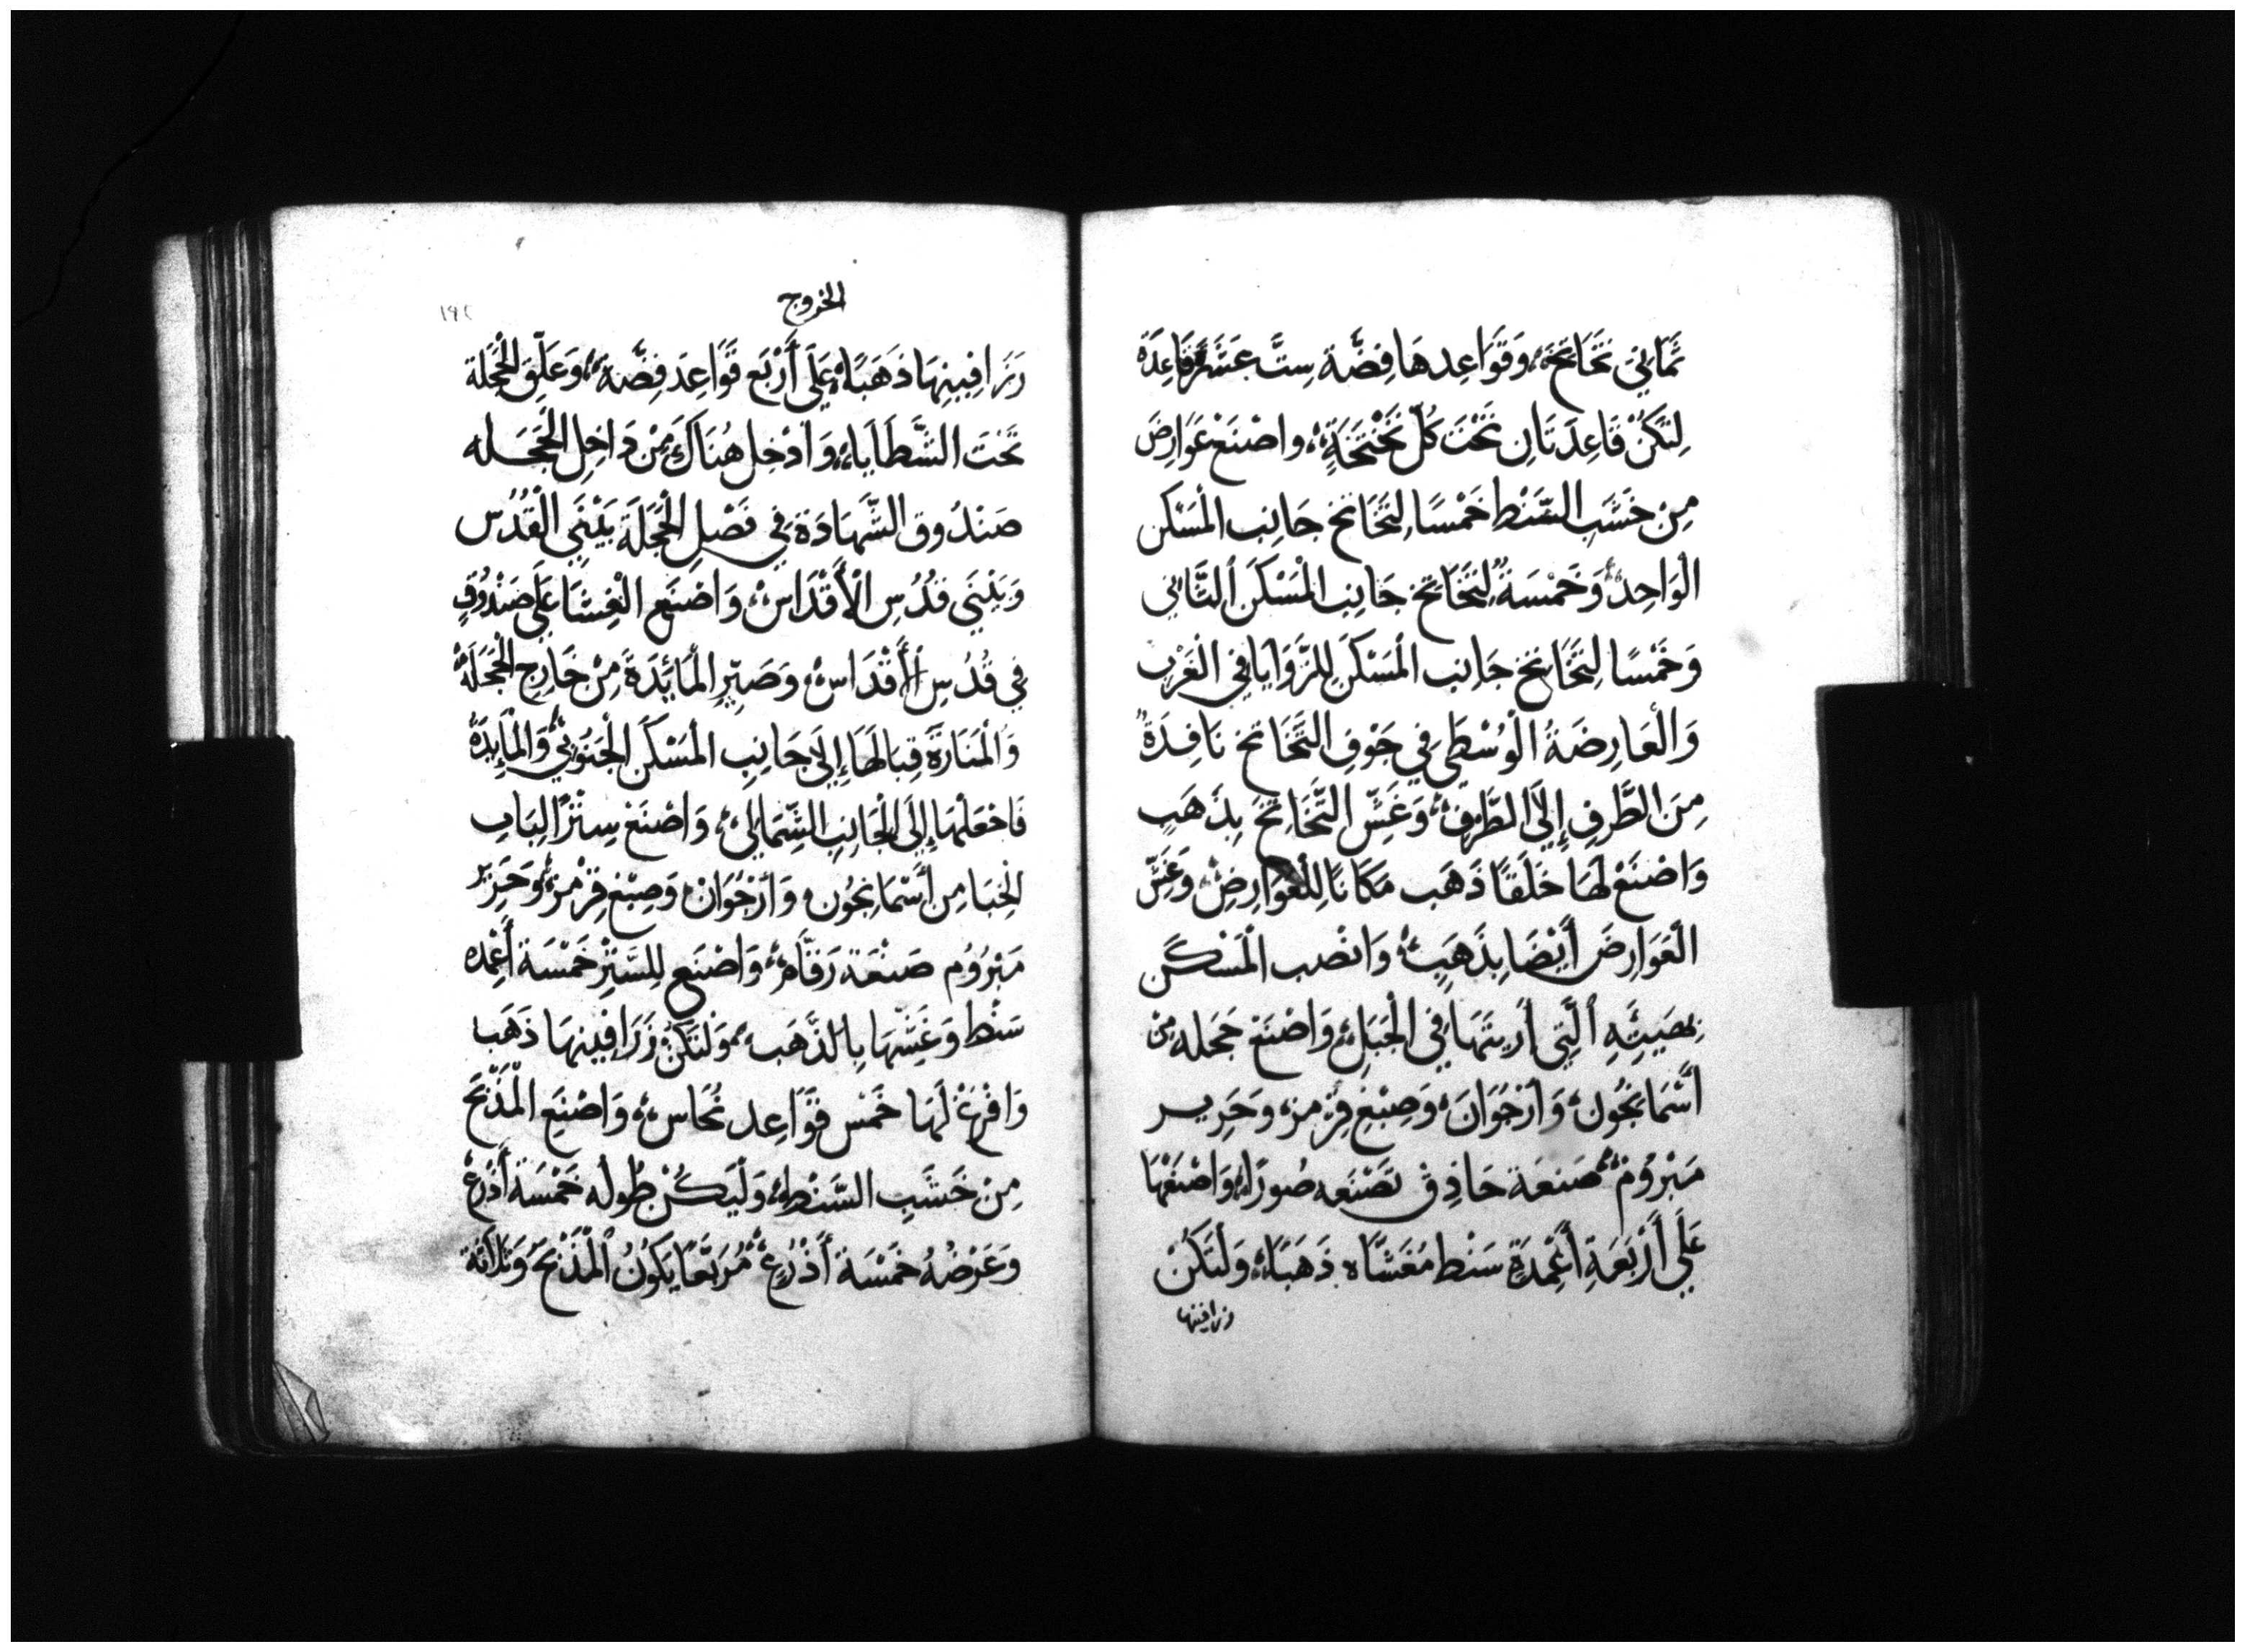 ثَمَانِي تَخَاتِخَ، وَقَوَاعِدهَا فِضَّة سِتَّ عَشَرَة قَاعِدَة
لِتَكُنْ قَاعِدَتَانِ تَحْتَ كُلّ تَخْتَخَةٍ، واصْنَعْ عَوَارِضَ
مِنْ خَشَبِ السَّنْط خَمْسًا لِتَخَاتخ جَانِب الْمَسْكَن
الْوَاحِد، وَخَمْسَةً لِتَخَاتخ جَانِب الْمَسْكَن ٱلثَّانِي
وَخَمْسًا لِتَخَاتخ جَانِب الْمَسْكَن لِلزَّوَايَا فِي الْغَرْب
وَالْعَارِضَةُ الْوُسْطَى فِي جَوْفِ التَّخَاتخ نَافِدَةً
مِنَ الطَّرفِ إِلَى الطَّرَفِ، وَغَشِّ التَّخَاتِخَ بِذَهَبٍ
وَاصْنَعْ لَهَا حَلَقًا ذَهَب مَكَانًا لِلْعَوَارِضِ وَغَشِّ
الْعَوَارِضَ أَيْضًا بِذَهَبٍ، وَانْصب الْمَسْكَن
بِصِيَتِهِ ٱلَّتِي أُرِيتَهَا فِي الْجَبَلِ، وَاصْنَعْ حَجَله مِنْ
أَسْمَانجُون، وَأرْجُوَانَ، وَصِبْغِ قِرْمز، وَحَرِير
مَبْرُوْم، صَنعَة حَاذِق تَصْنَعه صُورًا، وَاصْنَعْهَا
عَلَى أَرْبَعَةِ أَعْمِدَةٍ سَنْط مُغَشَّاه ذَهَبًا، وَلْتَكُنْ
زرافينها
الخروج
١٩٢
زَرَافِينِهَا ذَهَبًا، عَلَى أَرْبَع قَوَاعِدَ فِضَّة، وَعَلِّقِ الْحَجَلَة
تَحْتَ الشَّظَايَا، وَأَدْخِل هُنَاكَ مِنْ دَاخِلِ الْحَجَلَه
صَنْدُوق الشَّهَادَة فِي فَصْلِ الْحَجَلَة بَيْنَي الْقُدُس
وَبَيْنَي قُدُسِ الْأَقْدَاس، وَاصْنَعِ الْغِشَا عَلَى صَنْدُوقٍ
فِي قُدُسِ الْأَقْدَاس، وَصَيِّرِ الْمَائِدَةَ مِنْ خَارِجِ الْحَجَلَة
وَالْمَنَارَةَ قِبَالَهَا إِلَى جَانِبِ الْمَسْكَن الْجَنُوبِي، وَالْمَايِدَةُ
فَاجْعَلْهَا إِلَى الْجَانِبِ الشِّمَالِي، وَاصْنَعْ سِتْرًا لِبَابِ
الْخِبَا مِن أَسْمَانجُون، وَأرْجُوَان، وَصِبْغ قِرْمز، وَحَرِيْرِ
مَبْرُوْم صَنْعَة رَقَّام، وَاصْنَع لِلسَّتْرِ خَمْسَة أَعْمِده
سَنْط وَغَشِّهَا بِالذَّهَب، وَلْتَكُنْ زَرَافِينِهَا ذَهَب
وَافْرِغْ لَهَا خَمْس قَوَاعِد نُحَاس، وَاصْنَعِ الْمَذْبَحَ
مِنْ خَشَبِ السَّنْط، وَلْيَكُنْ طُوله خَمْسَة أَذْرِع
وَعَرْضُهُ خَمْسَة أَذْرُعٍ، مُرَبَّعًا يَكُونُ الْمَذْبَحَ، وَثَلَاثَة